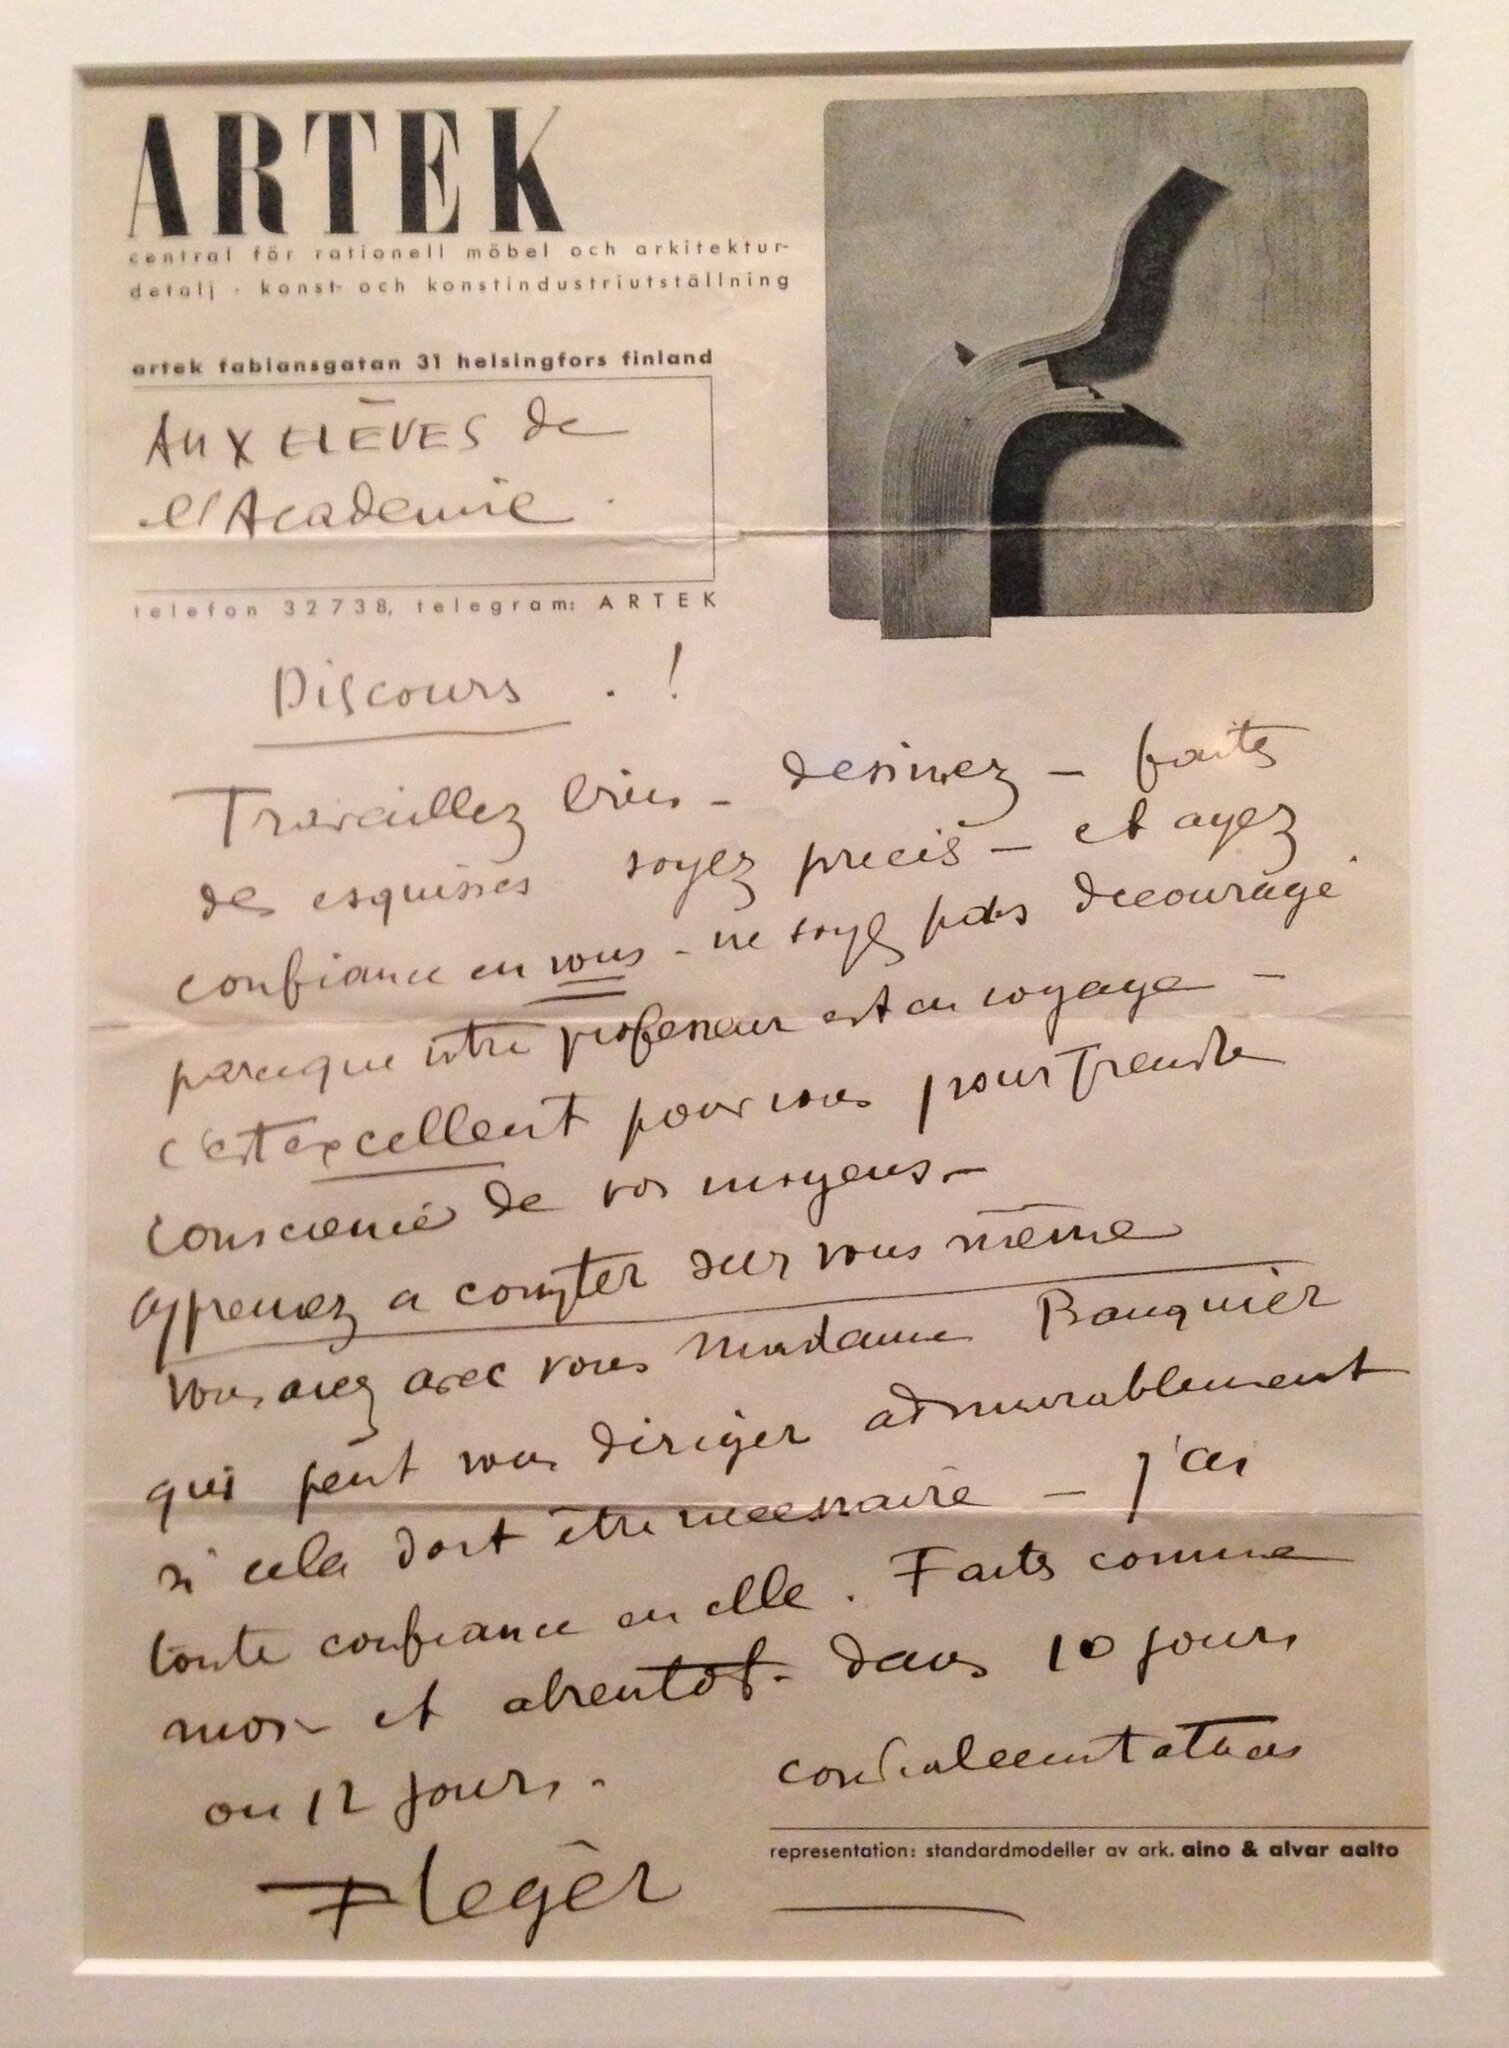 ARTEK
central för rationell möbel och arkitektur-
detalj · konst- och konstindustriutställning
artek fabiansgatan 31 helsingfors finland
AUX ELÈVES de
l'Academie
telefon 32738, telegram: ARTEK
Discours . !
Travaillez bien - dessinez - faites
des esquisses soyez precis - et ayez
confiance en vous - ne soyez pas decouragé
parceque votre professeur est en voyage -
c'est excellent pour vous pour prendre
conscience de vos moyens -
apprenez a compter sur vous même
vous avez avec vous Madame Bauquier
qui peut vous diriger admirablement
si cela doit être necessaire - j'ai
toute confiance en elle. Faites comme
moi - et a bientot - dans 10 jours
ou 12 jours.
cordialement a tous
representation: standardmodeller av ark. aino & alvar aalto
F Legèr